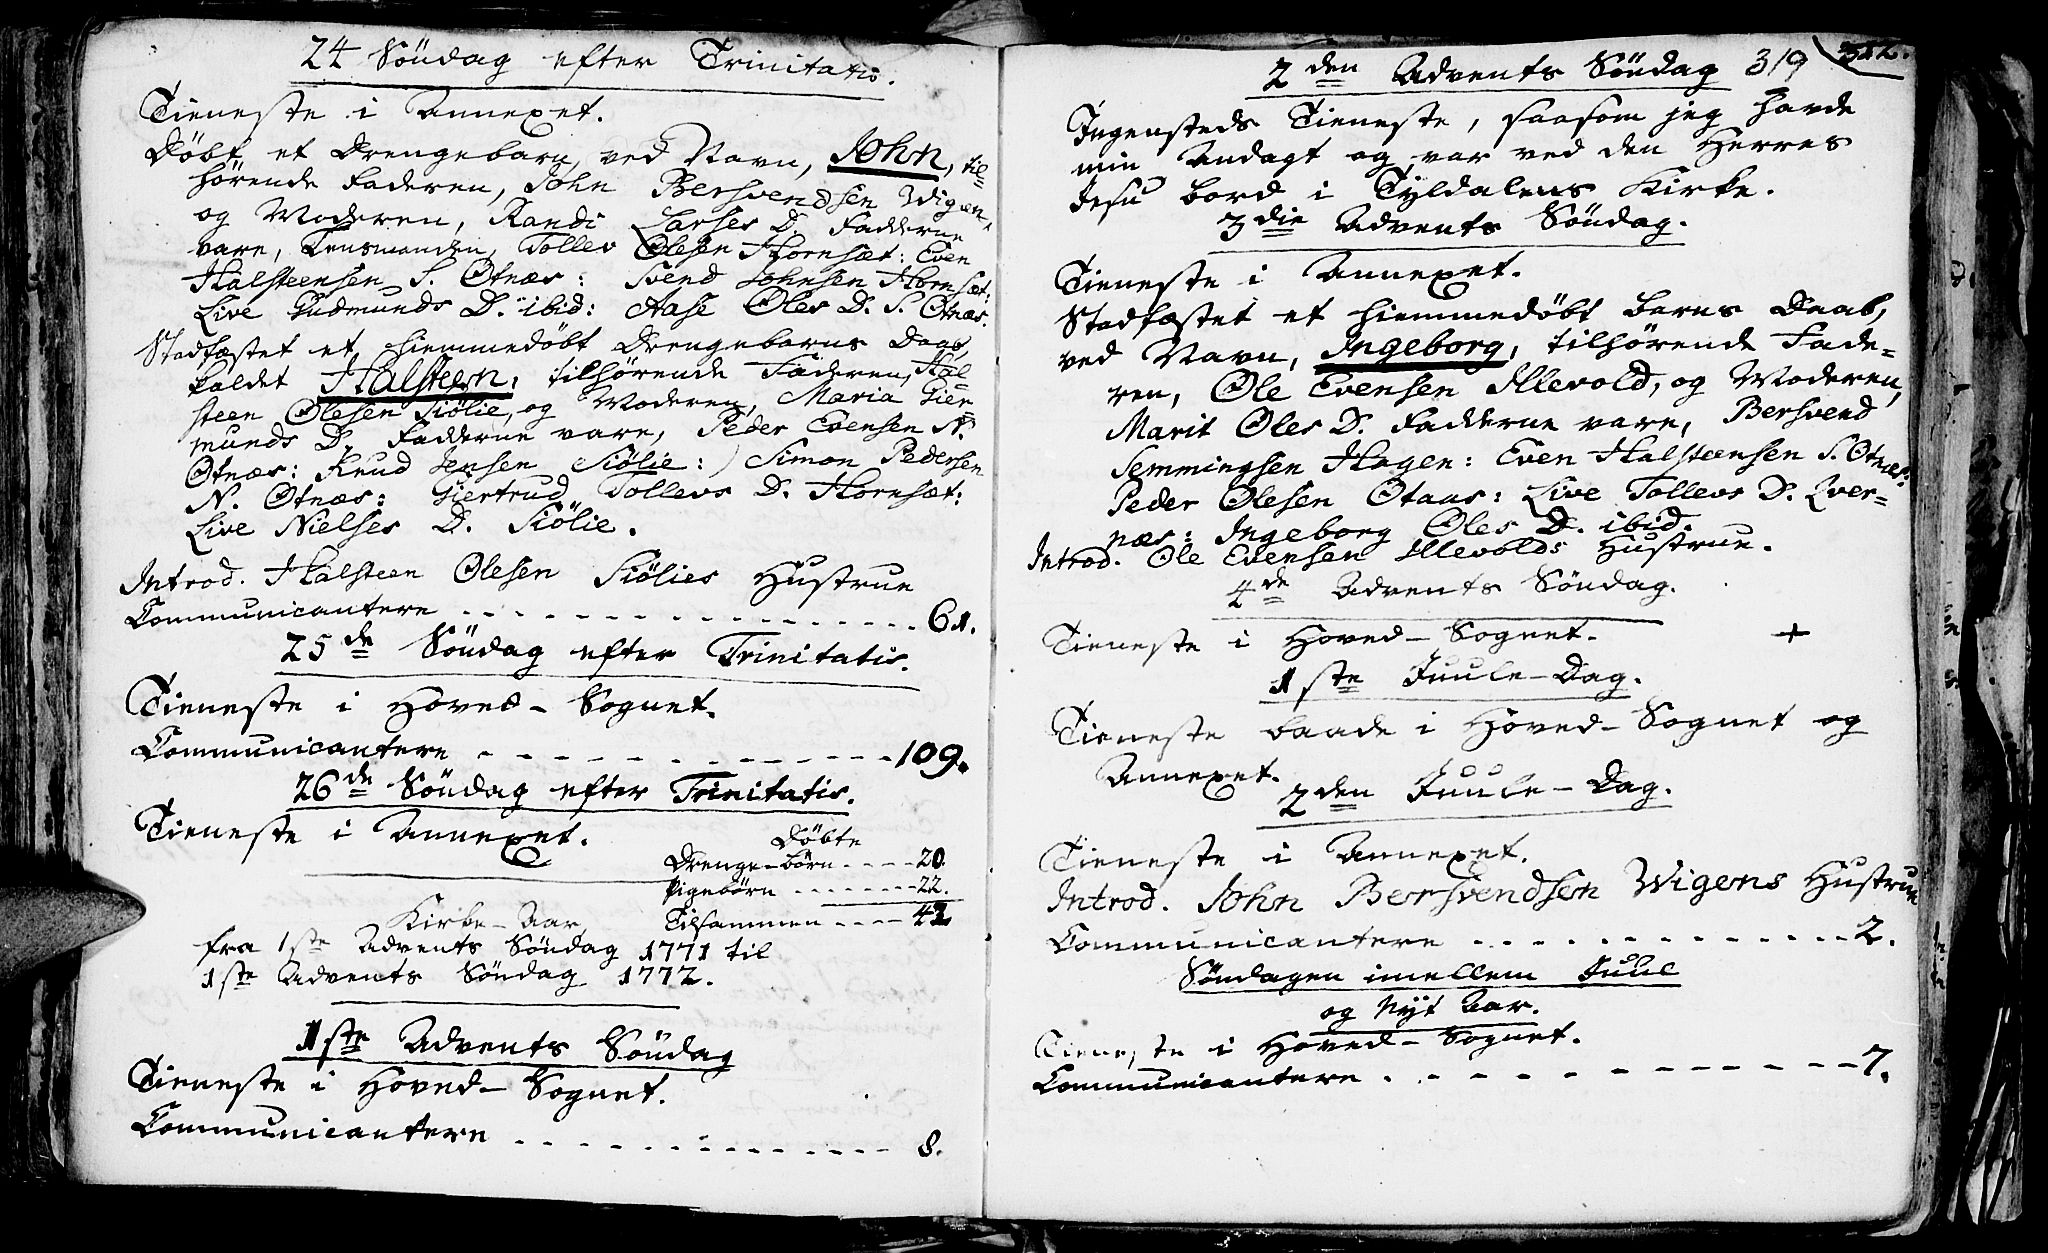 24 Söndag efter Trinitatis.
Tieneste i Annexet.
Döbt et Drengebarn, ved Navn, John, til=
hörende Faderen, John Bersvendsen Wigen,
og Moderen, Randi Larses D. Fadderne
vare, Lensmanden, Tollev Olesen Hornset: Even
Halsteensen S. Otnæs: Svend Johnsen Hornset:
Live Gudmunds D. ibid: Aase Oles D. S. Otnæs.
Stadfæstet et hiemmedöbt Drengebarns Daab,
kaldet Halsteen, tilhörende Faderen, Hal=
steen Olesen Siölie, og Moderen, Maria Gier=
munds D. Fadderne vare, Peder Evensen N.
Otnæs: Knud Jensen Siölie: Simon Pedersen
N. Otnæs: Giertrud Tollevs D. Hornset:
Live Nielses D. Siölie.
Introd. Halsteen Olesen Siölies Hustrue
Communicantere 61.
25de Söndag efter Trinitatis.
Tieneste i Hoved-Sognet.
Communicantere 109.
26de Söndag efter Trinitatis.
Tieneste i Annexet.
Döbte
Drenge-börn 20.
Pigebörn 22.
Tilsammen 42
Kirke-Aar
fra 1ste Advents Söndag 1771 til
1ste Advents Söndag 1772.
1ste Advents Söndag
Tieneste i Hoved-Sognet.
Communicantere 8.
2den Advents Söndag 319
Ingensteds Tieneste, saasom jeg havde
min Andagt og var ved den Herres
Jesu bord i Tyldalens Kirke.
3die Advents Söndag.
Tieneste i Annexet.
Stadfæstet et hiemmedöbt barns Daab,
ved Navn, Ingeborg, tilhörende Fade=
ren, Ole Evensen Illevold, og Moderen,
Marit Oles D. Fadderne vare, Bersvend
Semmingsen Hagen: Even Halsteensen S. Otnæs:
Peder Olesen Otnæs: Live Tollevs D. Qver=
næs: Ingeborg Oles D. ibid.
Introd. Ole Evensen Illevolds Hustrue.
4de Advents Söndag.
Tieneste i Hoved-Sognet. +
1ste Juule-Dag.
Tieneste baade i Hoved-Sognet og
Annexet.
2den Juule-Dag.
Tieneste i Annexet.
Introd. John Bersvendsen Wigens Hustrue
Communicantere 2.
Söndagen imellem Juul
og Nyt Aar.
Tieneste i Hoved-Sognet.
Communicantere 7.